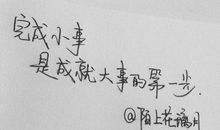 完成小事
是成就大事的第一步.
@陌上花满月